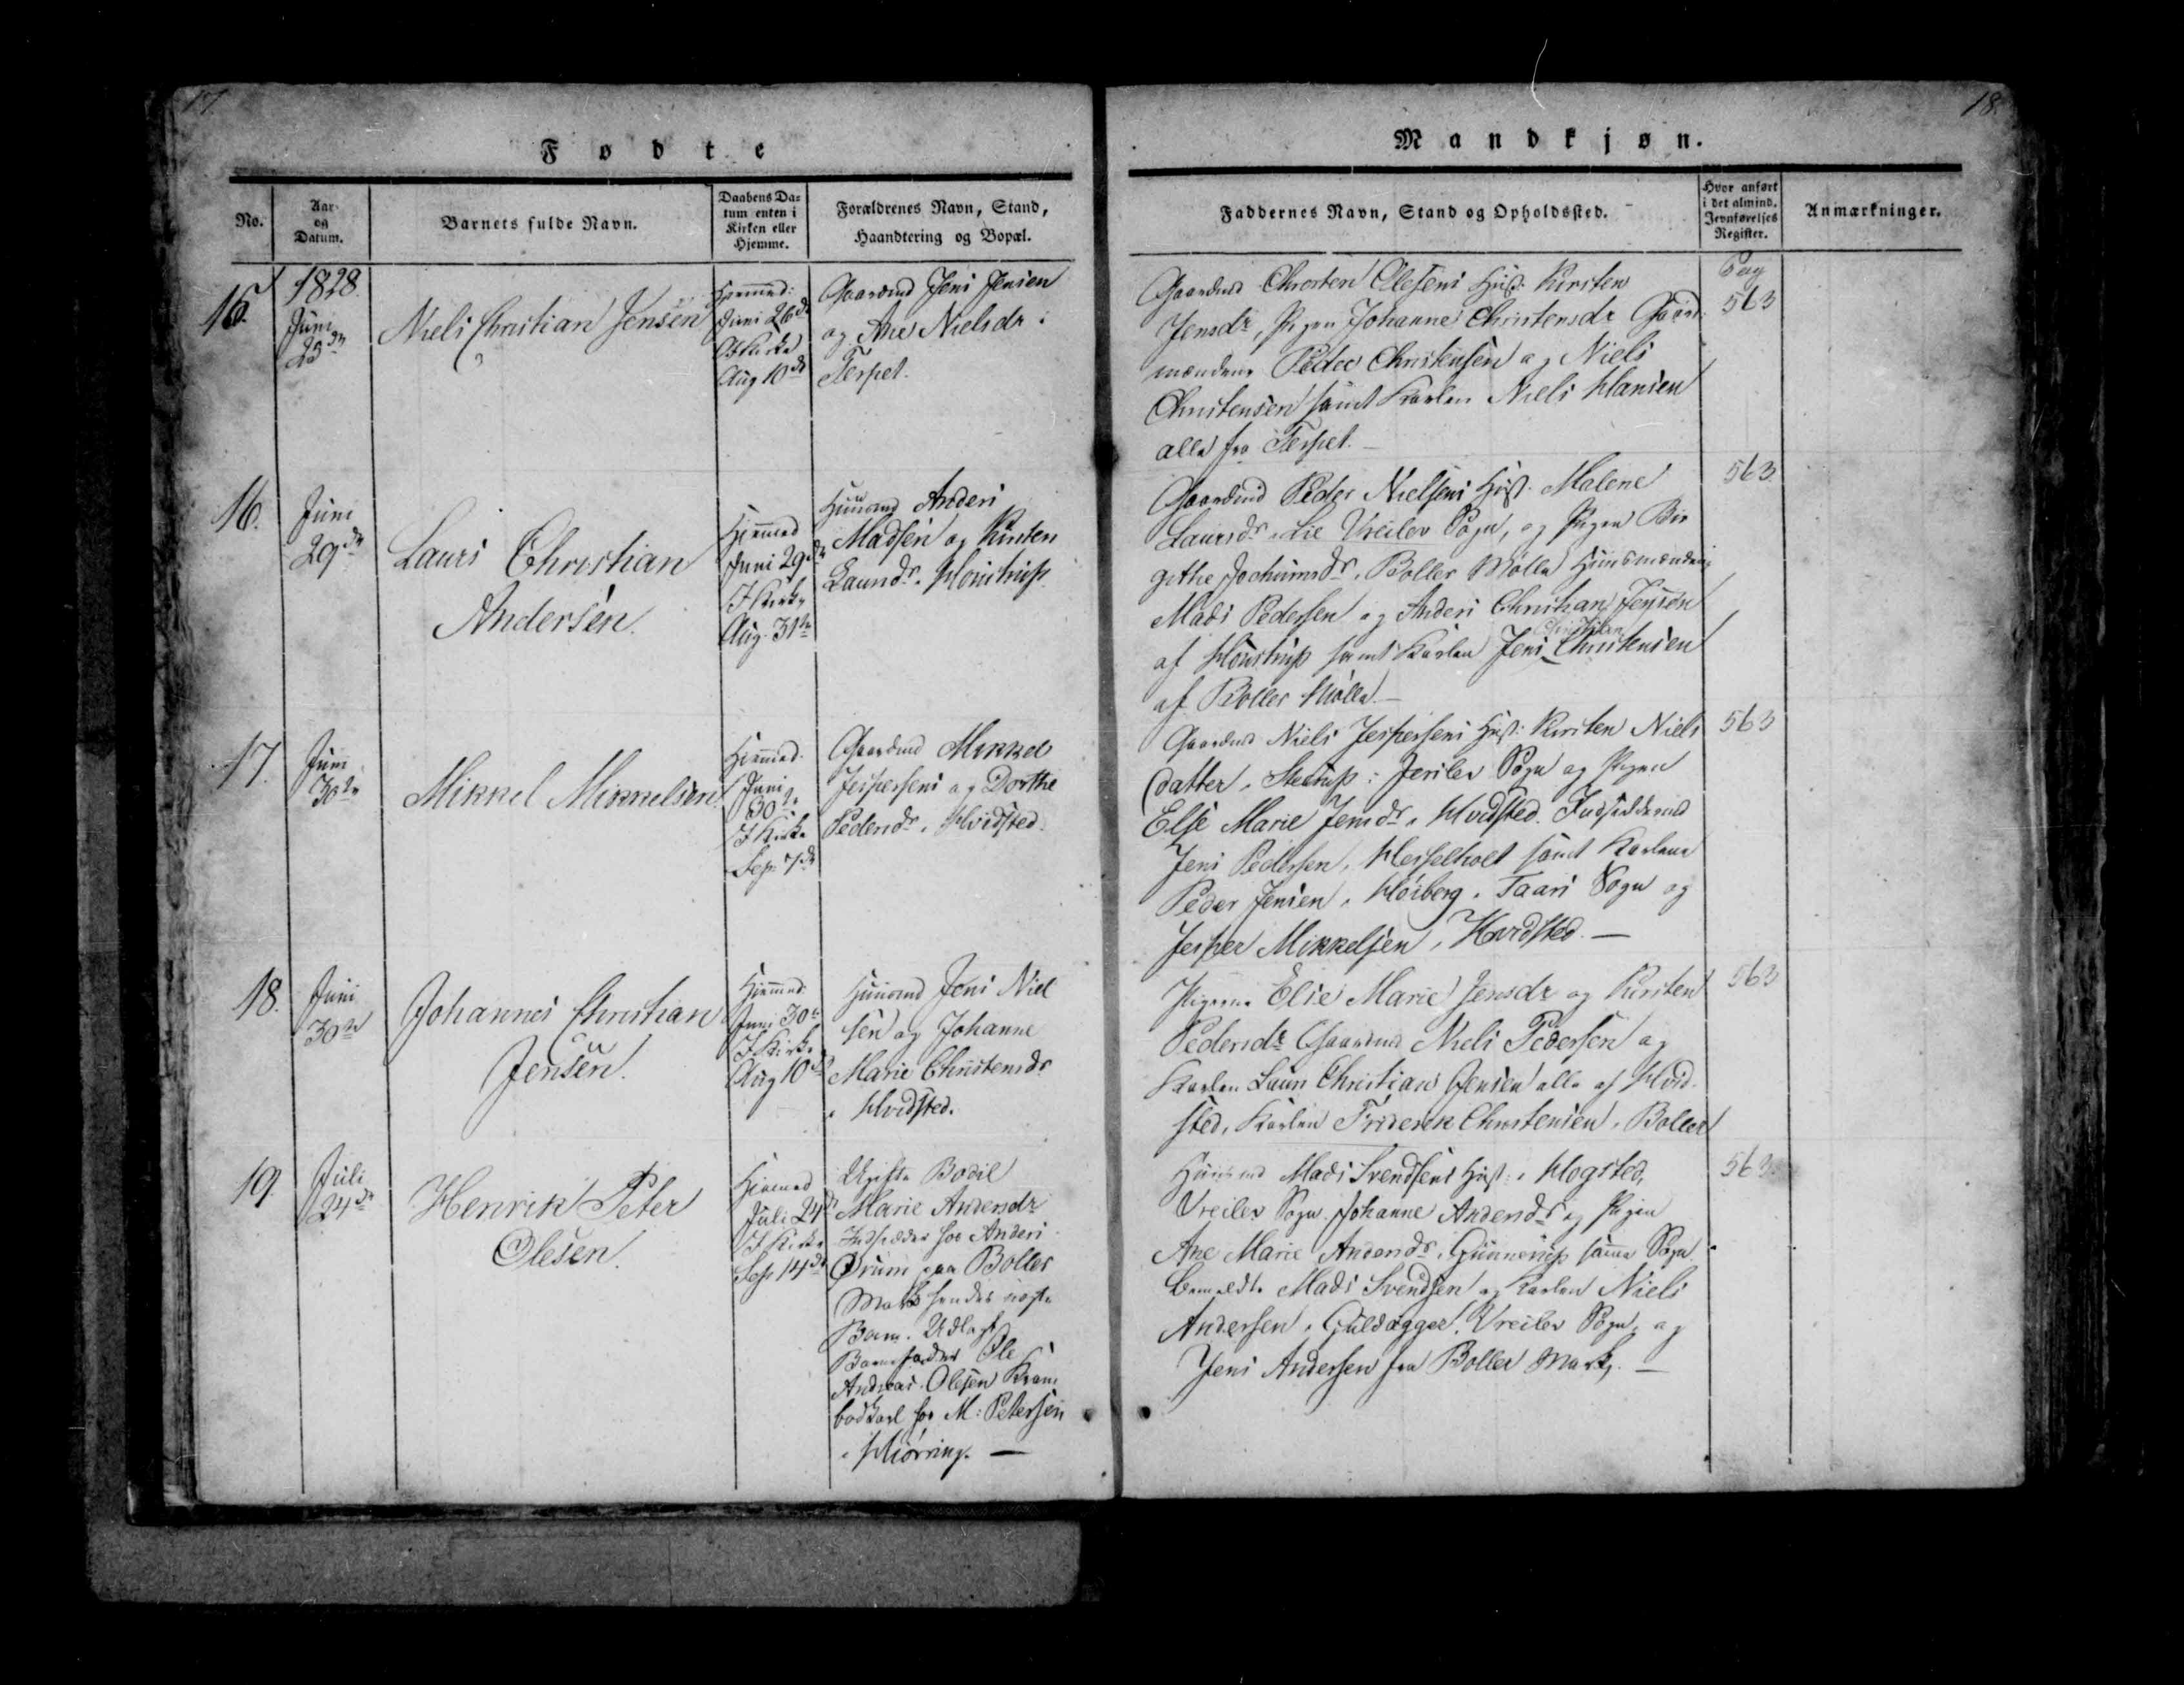 17.
Fødte
No.
Aar
og
Datum.
Barnets fulde Navn.
Daabens Da=
tum enten i
Kirken eller
Hjemme.
Forældrenes Navn, Stand,
Haandtering og Bopæl.
15.
1828.
Juni
23de
Niels Christian Jensen
Hjemmed:
Juni 26de
Aug 10de
Gaardmd Jens Jensen
og Ane Nielsdr i
Terpet.
16.
Juni
29de
Laurs Christian
Andersen.
Hjemmed
Juni 29de
I Kirke
Aug. 31te
Huusmd Anders
Madsen og Kirsten
Laursdr. Houstrup.
17.
Juni
30te
Mikkel Mikkelsen.
Hjemmed.
Juni
30te
I Kirke
Sep. 7de
Gaardmd Mikkel
Jespersens og Dorthe
Pedersdr. Hvidsted.
18.
Juni
30te
Johannes Christian
Jensen.
Hjemmed.
Juni 30te
I Kirke
Aug 10de
Huusmd Jens Niel
sen og Johanne
Marie Christensdr
i Hvidsted.
19.
Juli
24de
Henrik Peter
Olesen.
Hjemmed
Juli 24de
I Kirke
Sep 14de
Ugifte Bodil
Marie Andersdr
Indsidder hos Anders
Ørum paa Boller
Mark hendes
Barn. Udlagt
Barnefader Ole
Andreas Olesen Kram
bodkarl hos M: Petersen
i Hiørring. —
18.
Mandkjøn.
Faddernes Navn, Stand og Opholdssted.
Hvor anført
i det almind.
Jevnførelses
Register.
Anmærkninger.
Gaardmd Chresten Olesens Hust: Kirsten
Jensdr, Pigen Johanne Christensdr Gaard
mændene Peder Christensen og Niels
Christensen samt Karlen Niels Hansen
alle fra Terpet. —
Pag
563
Gaardmd Peder Nielsens Hust. Malene
Laursdr. Lie Vreilev Sogn, og Pigen Bir
githe Jochumsdr. Boller Mølle Huusmændene
Mads Pedersen og Anders Christian Jensen
Christian
af Houstrup samt Karlen Jens Christensen
af Boller Mølle. —
563
Gaardmd Niels Jespersens Hust: Kirsten Niels
datter. Sterup: Jerslev Sogn og Pigen
Else Marie Jensdr. Hvidsted. Indsiddermd
Jens Pedersen, Hesselholt samt Karlene
Peder Jensen, Høiberg. Taars Sogn og
Jesper Mikkelsen, Hvidsted. —
563
Pigerne Else Marie Jensdr og Kirsten
Pedersdr Gaardmd Niels Pedersen og
Karlen Laurs Christian Jensen alle af Hvid
sted, Karlen Friderik Christensen, Boller
563
Huusmd Mads Svendsens Hust: i Mogsted,
Vreilev Sogn. Johanne Andersdr og Pigen
Ane Marie Andersdr. Gunnerup samme Sogn
bemeldte Mads Svendsen og Karlen Niels
Andersen. Guldagger. Vreilev Sogn, og
Jens Andersen fra Boller Mark. —
563